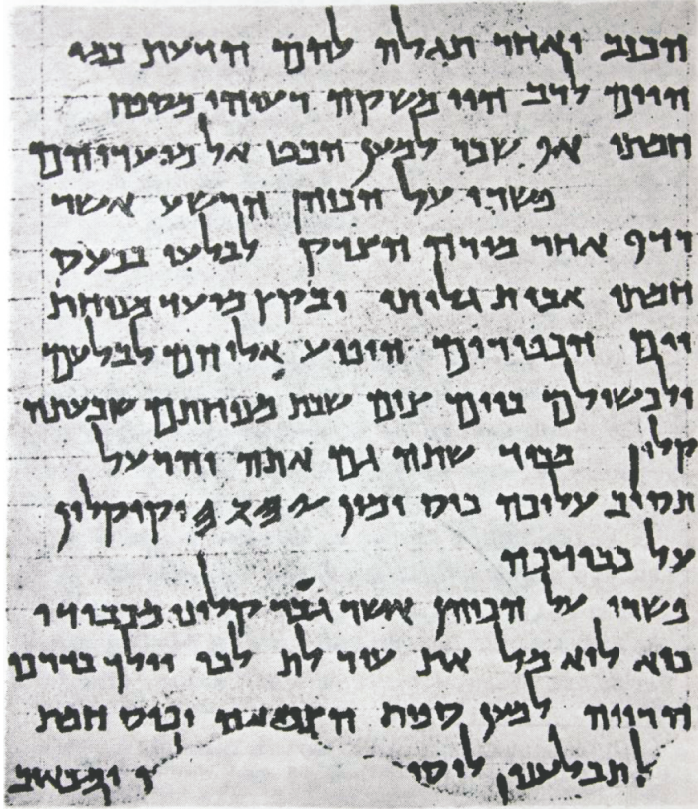 הכזב ואחר תגלה להם הדעת כמי
היים לרב הוי משקה רעיהו מספח
חמתו אף שכר למען הבט אל מועדיהם
פשרו על הכוהן הרשע אשר
רדף אחר מורה הצדק לבלעו בכעס
חמתו אבית גלותו ובקץ מועד מנוחת
יום הכפורים הופיע אליהם לבלעם
ולכשילם ביום צום שבת מנוחתם שבעתה
קלון מכבוד שתה גם אתה והרעל
תסוב עליכה כוס ימין 𐤉𐤄𐤅𐤄 וקיקלון
על כבודכה
פשרו על הכוהן אשר גבר קלונו מכבודו
כיא לוא מל את עורלת לבו וילך בדרכי
הרויה למען ספות הצמאה וכוס חמת
תבלענו ומכאוב